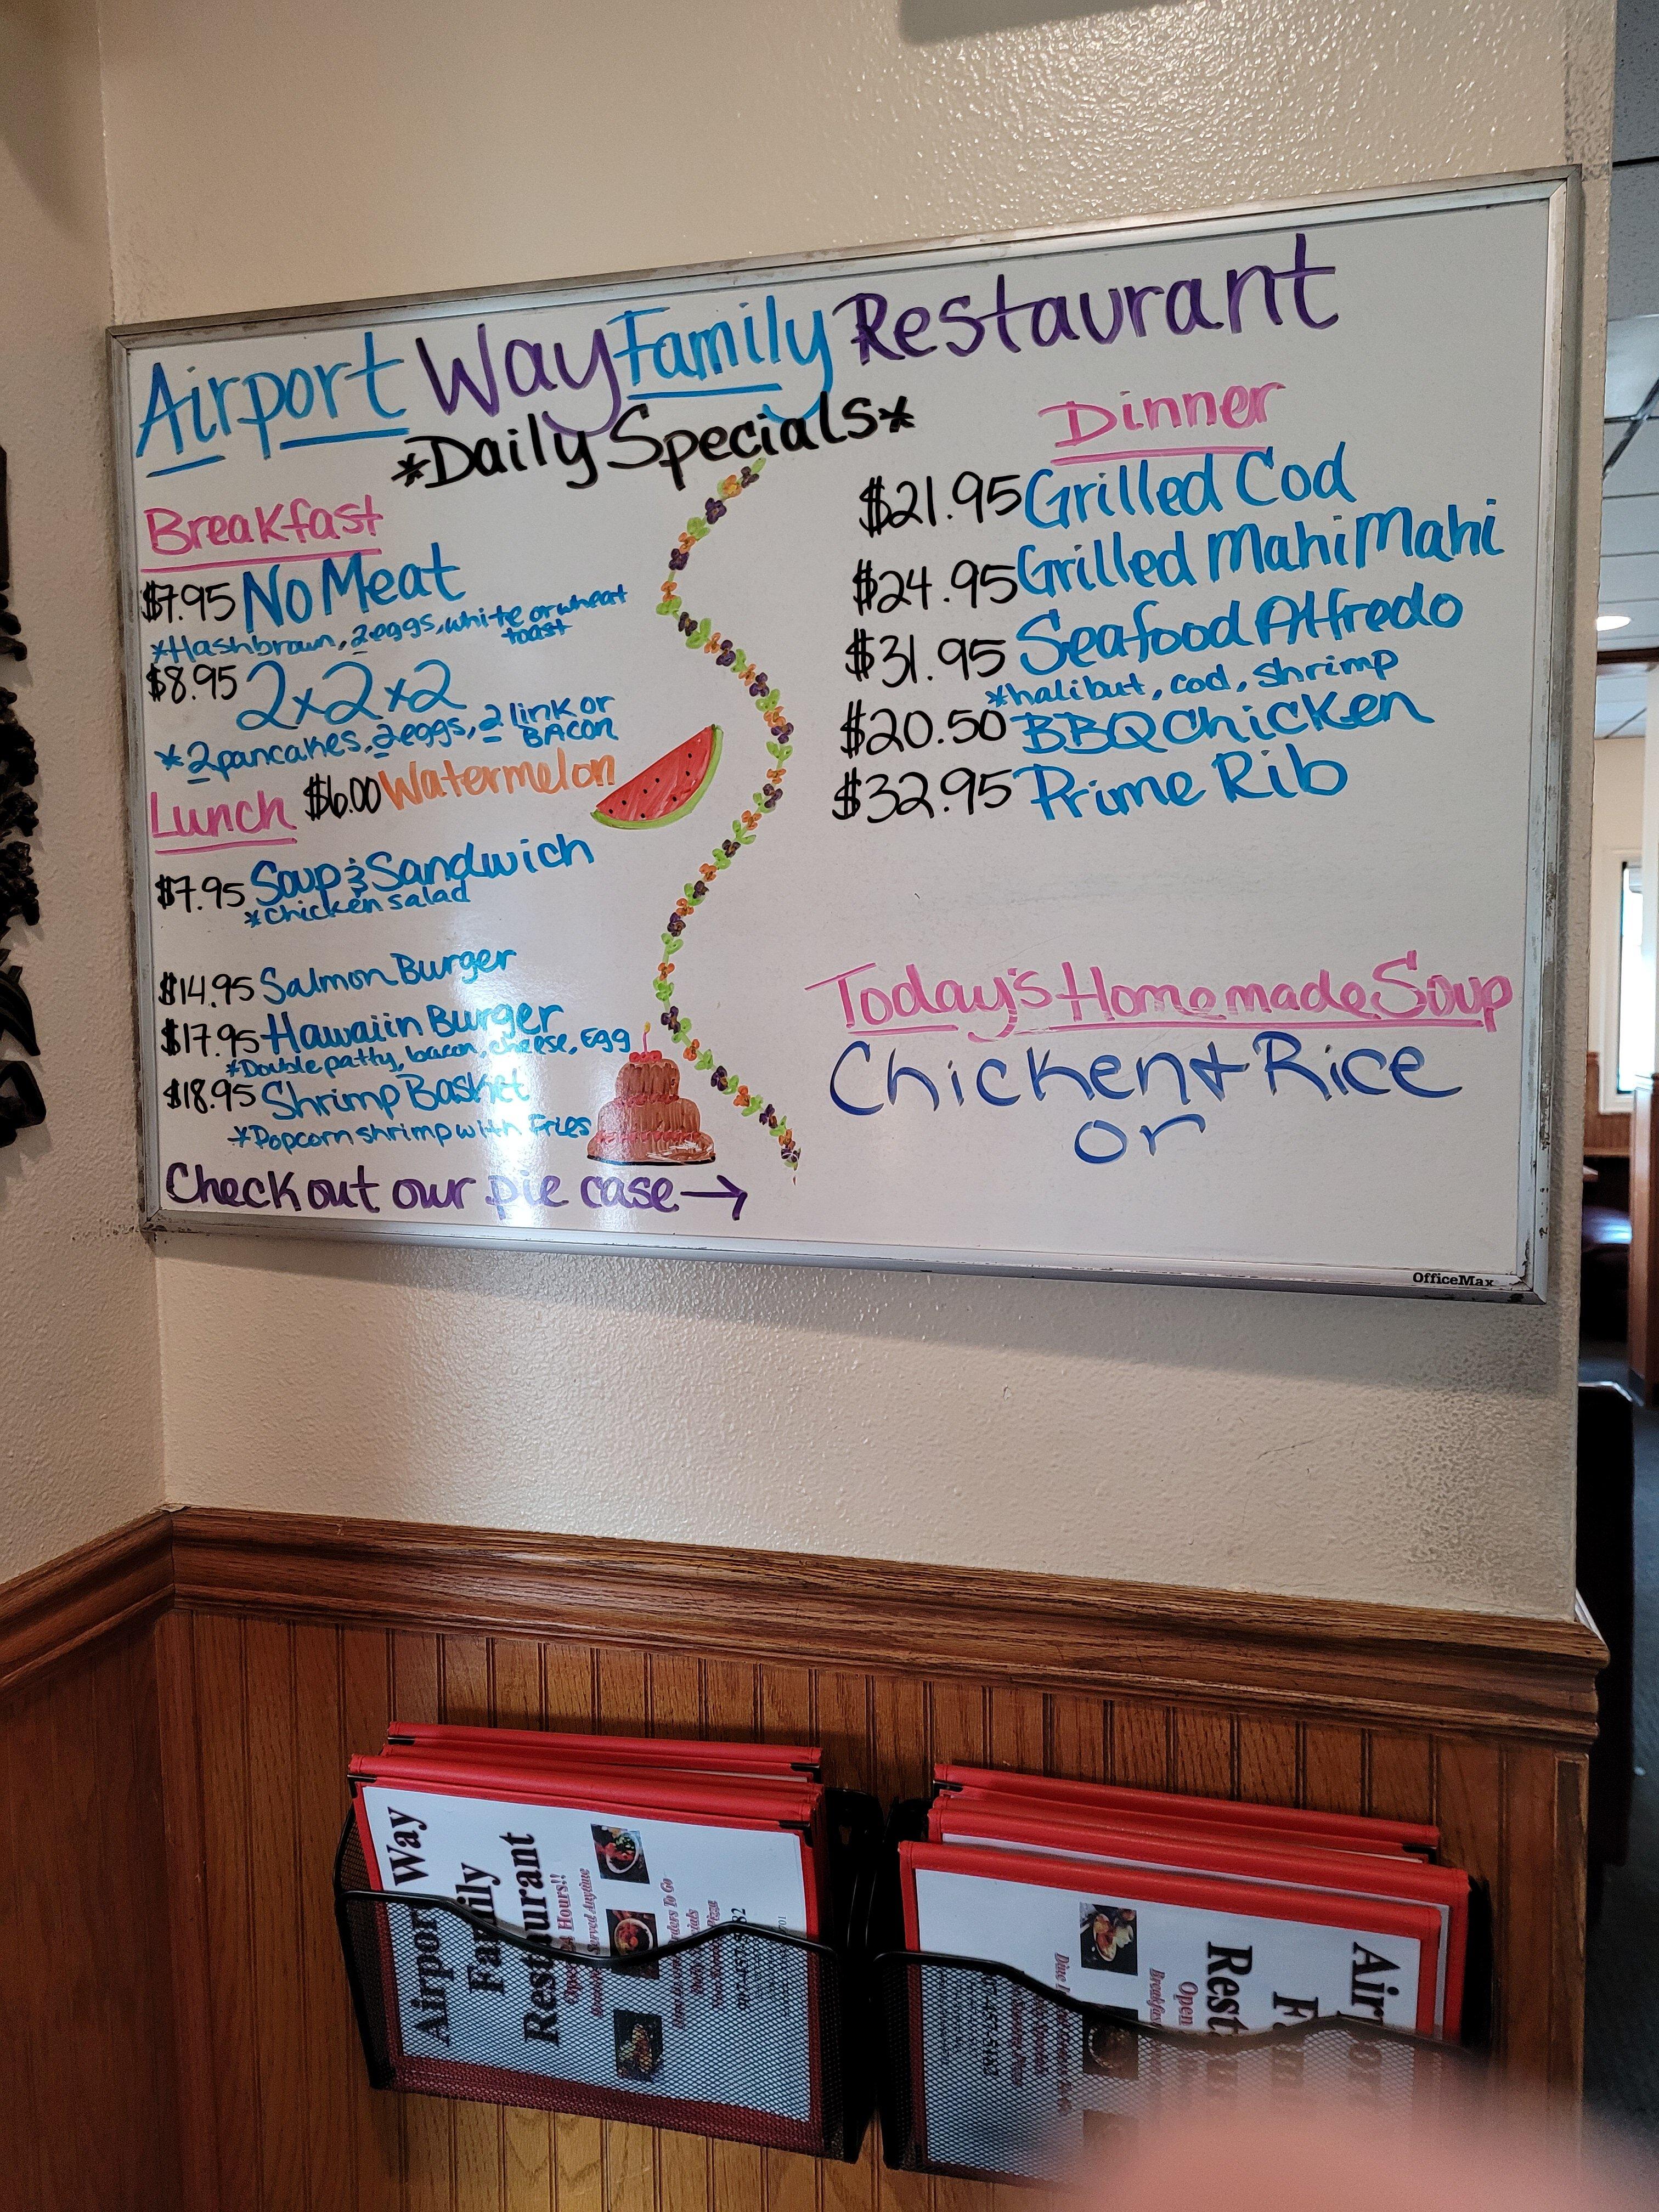 Airport Way Family Restaurant
*Daily Specials*
Breakfast
$7.95 No Meat
*Hashbrown, 2 eggs, white or wheat
toast
$8.95 2x2x2
*2 pancakes, 2 eggs, 2 link or
BAcon
Lunch $6.00 Watermelon
$7.95 Soup & Sandwich
*Chicken salad
$14.95 Salmon Burger
$17.95 Hawaiin Burger
*Double patty, bacon, cheese, Egg
$18.95 Shrimp Basket
*Popcorn shrimp with Fries
Check out our pie case →
Dinner
$21.95 Grilled Cod
$24.95 Grilled Mahi Mahi
$31.95 Seafood Alfredo
*halibut, cod, shrimp
$20.50 BBQ Chicken
$32.95 Prime Rib
Today's Homemade Soup
Chicken + Rice
or
OfficeMax
Airport Way
Family
Restaurant
Open 24 Hours!!
Served Anytime
Orders To Go
Pizza
Airport
Fam
Rest
Open
Breakfas
Dine I